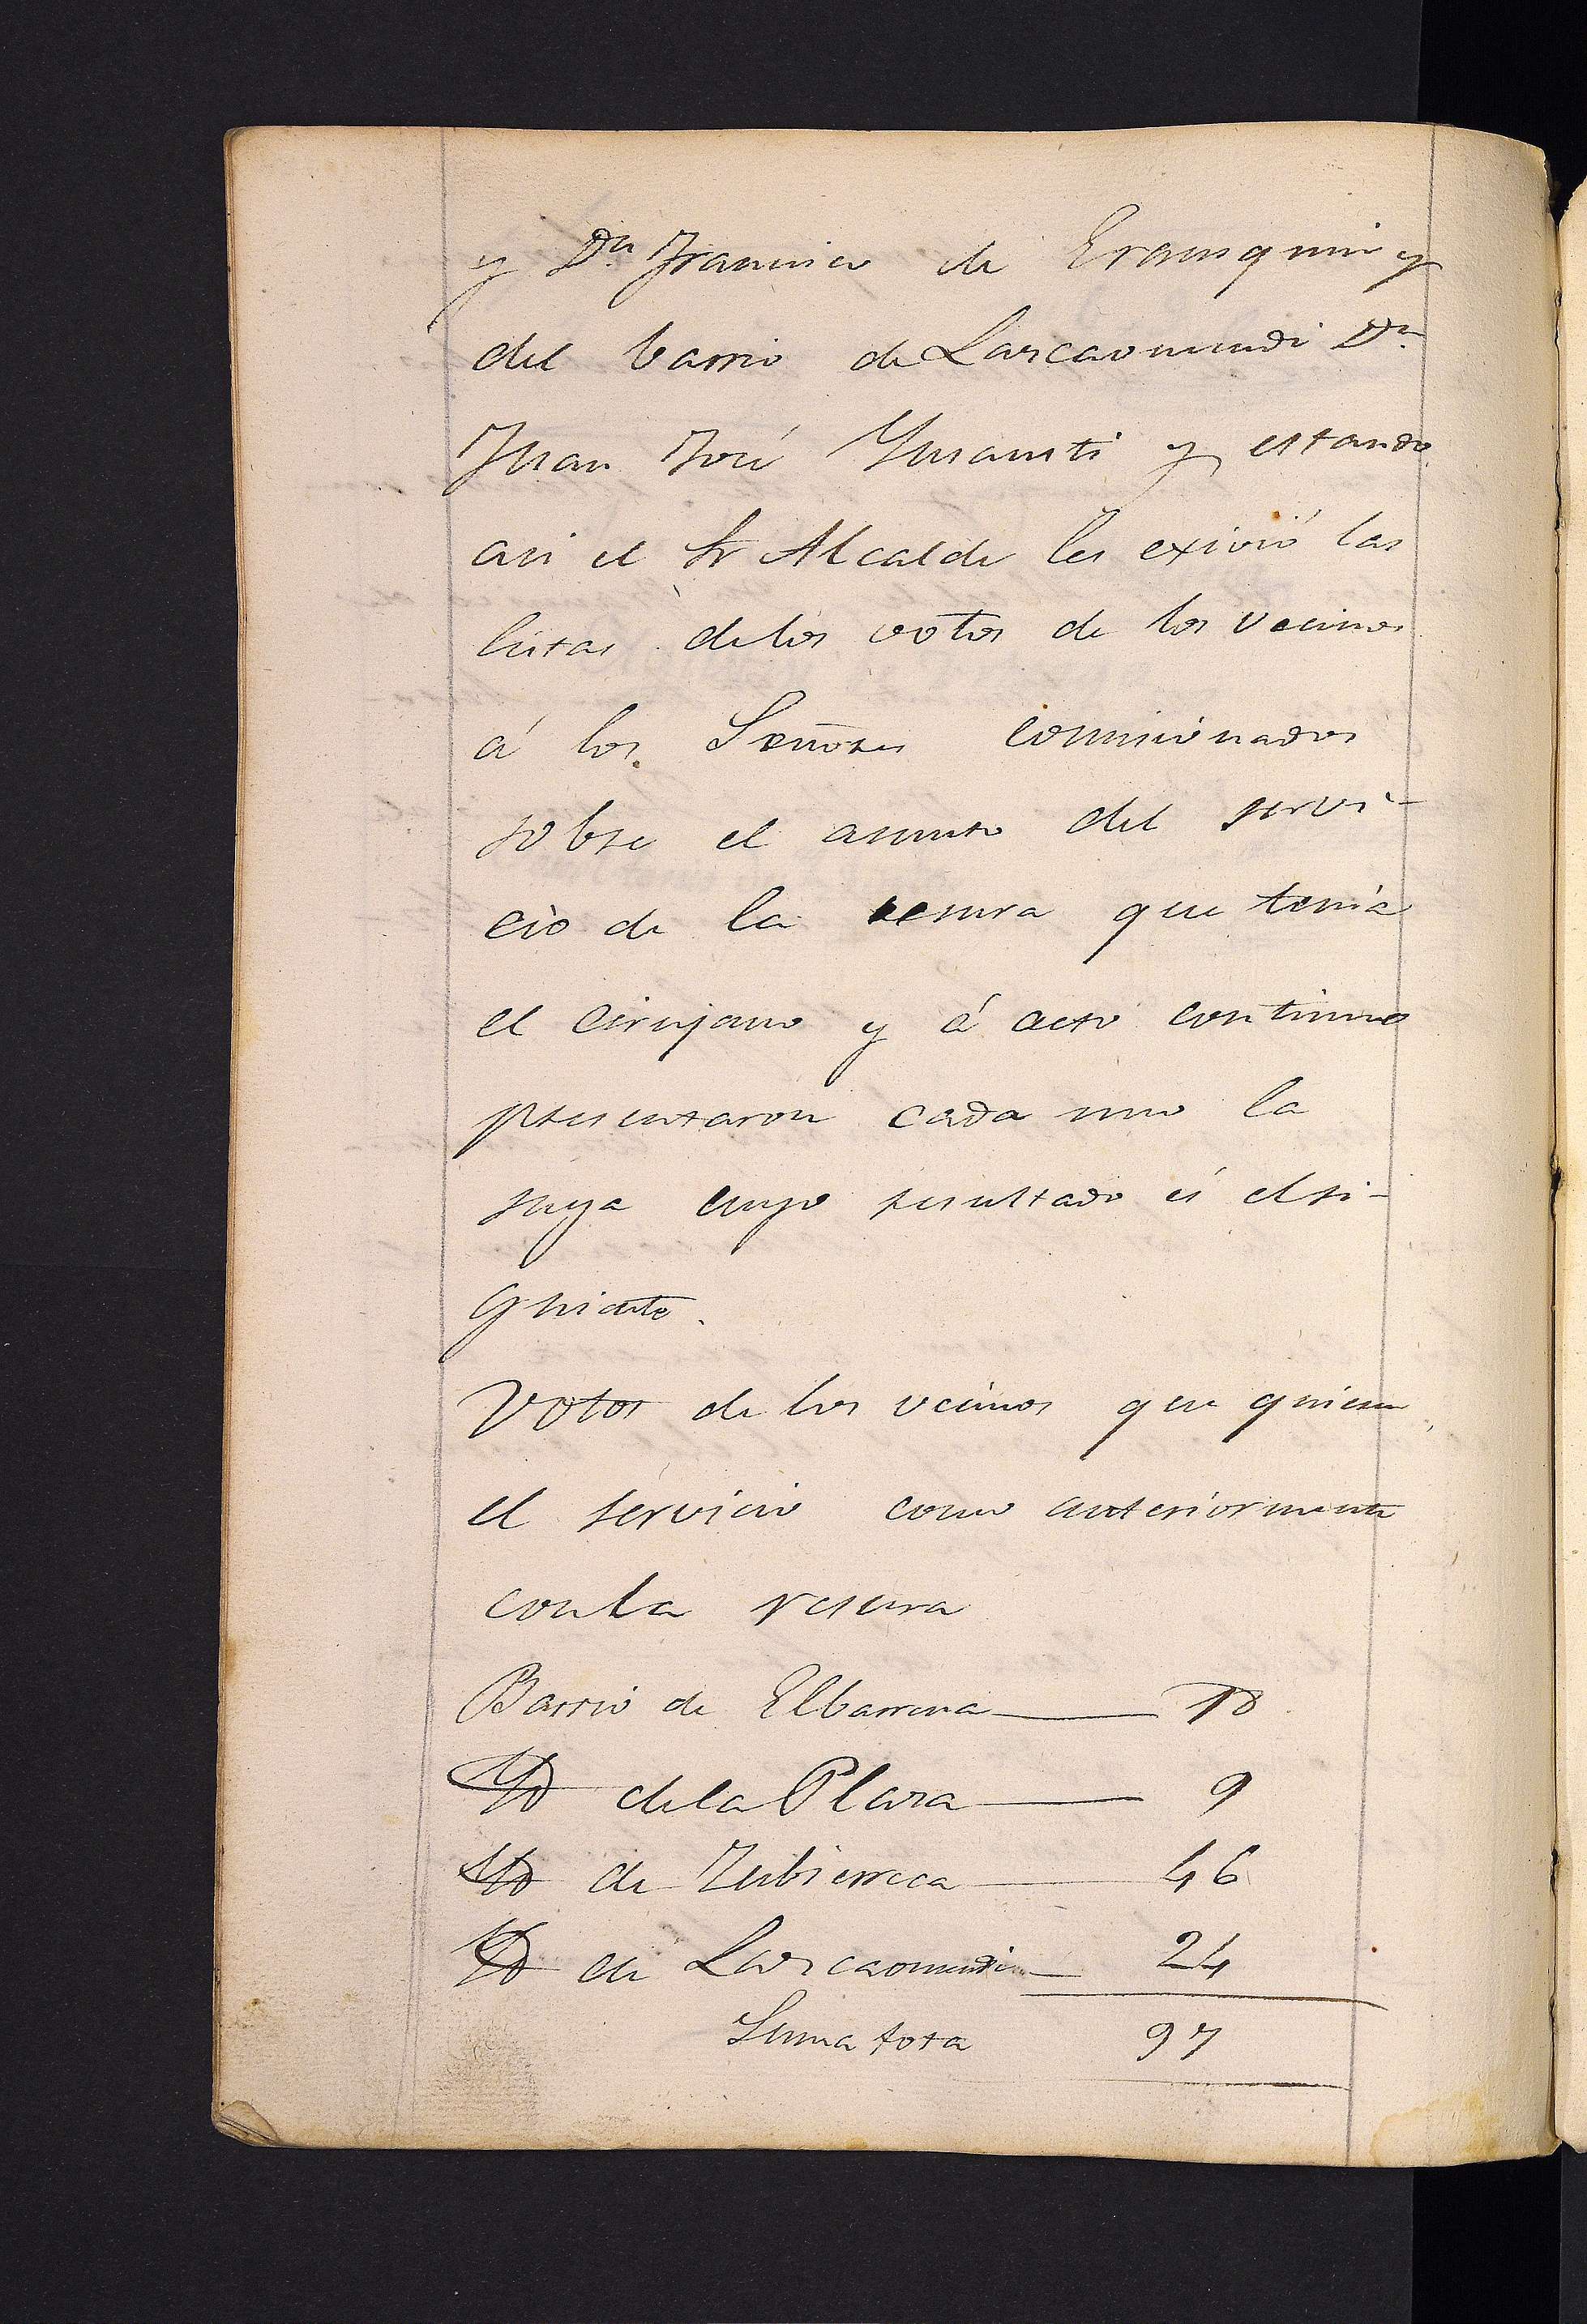 y Dn Francisco de Eransquin y
del barrio de Lascaomendi Dn
Juan José Ynsausti y estando
asi el Sr Alcalde les exivió las
listas de los votos de los vecinos
á los Señores comisionados
sobre el asunto del servi-
cio de la resura que tenia
el cirujano y á acto continuo
presentaron cada uno la
suya cuyo resultado és el si-
guiente.
Votos de los vecinos que quieren
el servicio como anteriormente
con la resura
Barrio de Elbarrena 18
Yd de la Plaza 9
Yd de Zubierreca 46
Yd de Lascaomendi 24
Suma tota 97